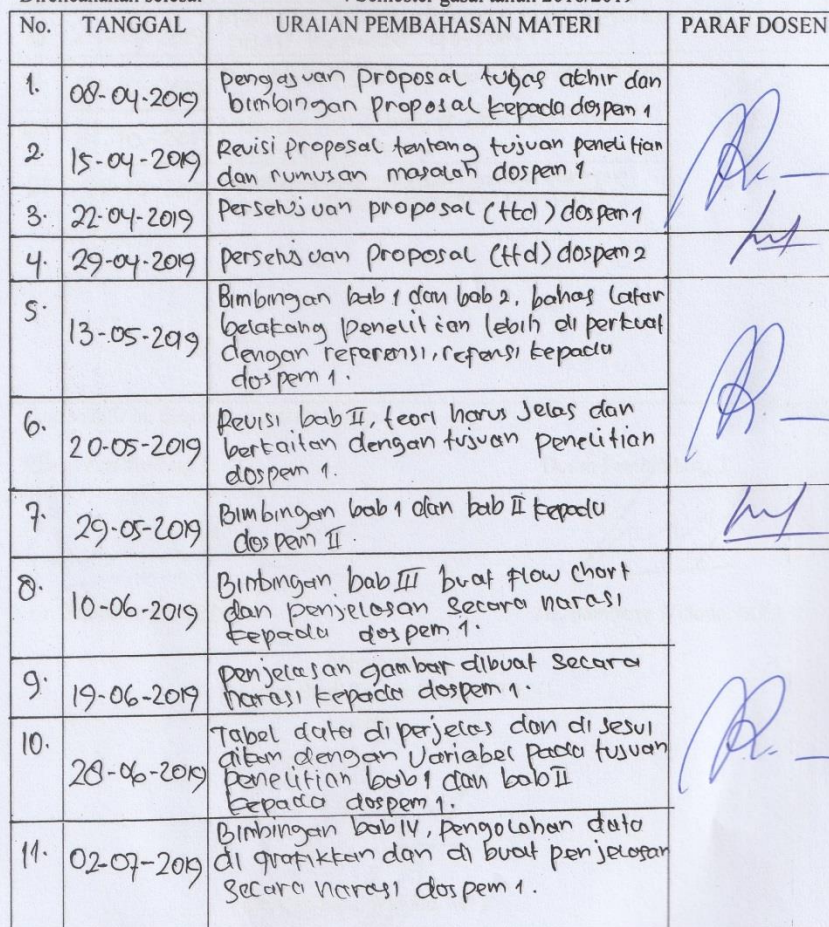 No. TANGGAL URAIAN PEMBAHASAN MATERI PARAF DOSEN
1. 08-04-2019 pengajuan proposal tugas akhir dan
bimbingan proposal kepada dospem 1
2. 15-04-2019 Revisi proposal tentang tujuan penelitian
dan rumusan masalah dospem 1
3. 22-04-2019 Persetujuan proposal (ttd) dospem 1
4. 29-04-2019 persetujuan proposal (ttd) dospem 2
5. 13-05-2019 Bimbingan bab 1 dan bab 2, bahas latar
belakang penelitian lebih di perkuat
dengan referensi, refensi kepada
dospem 1.
6. 20-05-2019 Revisi bab II, teori harus Jelas dan
berkaitan dengan tujuan penelitian
dospem 1.
7. 29-05-2019 Bimbingan bab 1 dan bab II kepada
dospem II
8. 10-06-2019 Bimbingan bab III buat flow chart
dan penjelasan secara narasi
kepada dospem 1.
9. 19-06-2019 penjelasan gambar dibuat secara
narasi kepada dospem 1.
10. 28-06-2019 Tabel data diperjelas dan di sesui
aikan dengan variabel pada tujuan
penelitian bab 1 dan bab II
kepada dospem 1.
11. 02-07-2019 Bimbingan bab IV, pengolahan data
di grafikkan dan di buat penjelasan
secara narasi dospem 1.